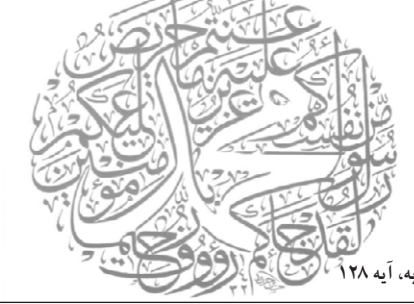 لقد جاءكم رسول من أنفسكم عزيز عليه ما عنتم حريص عليكم بالمؤمنين رؤوف رحيم
به، آیه ۱۲۸